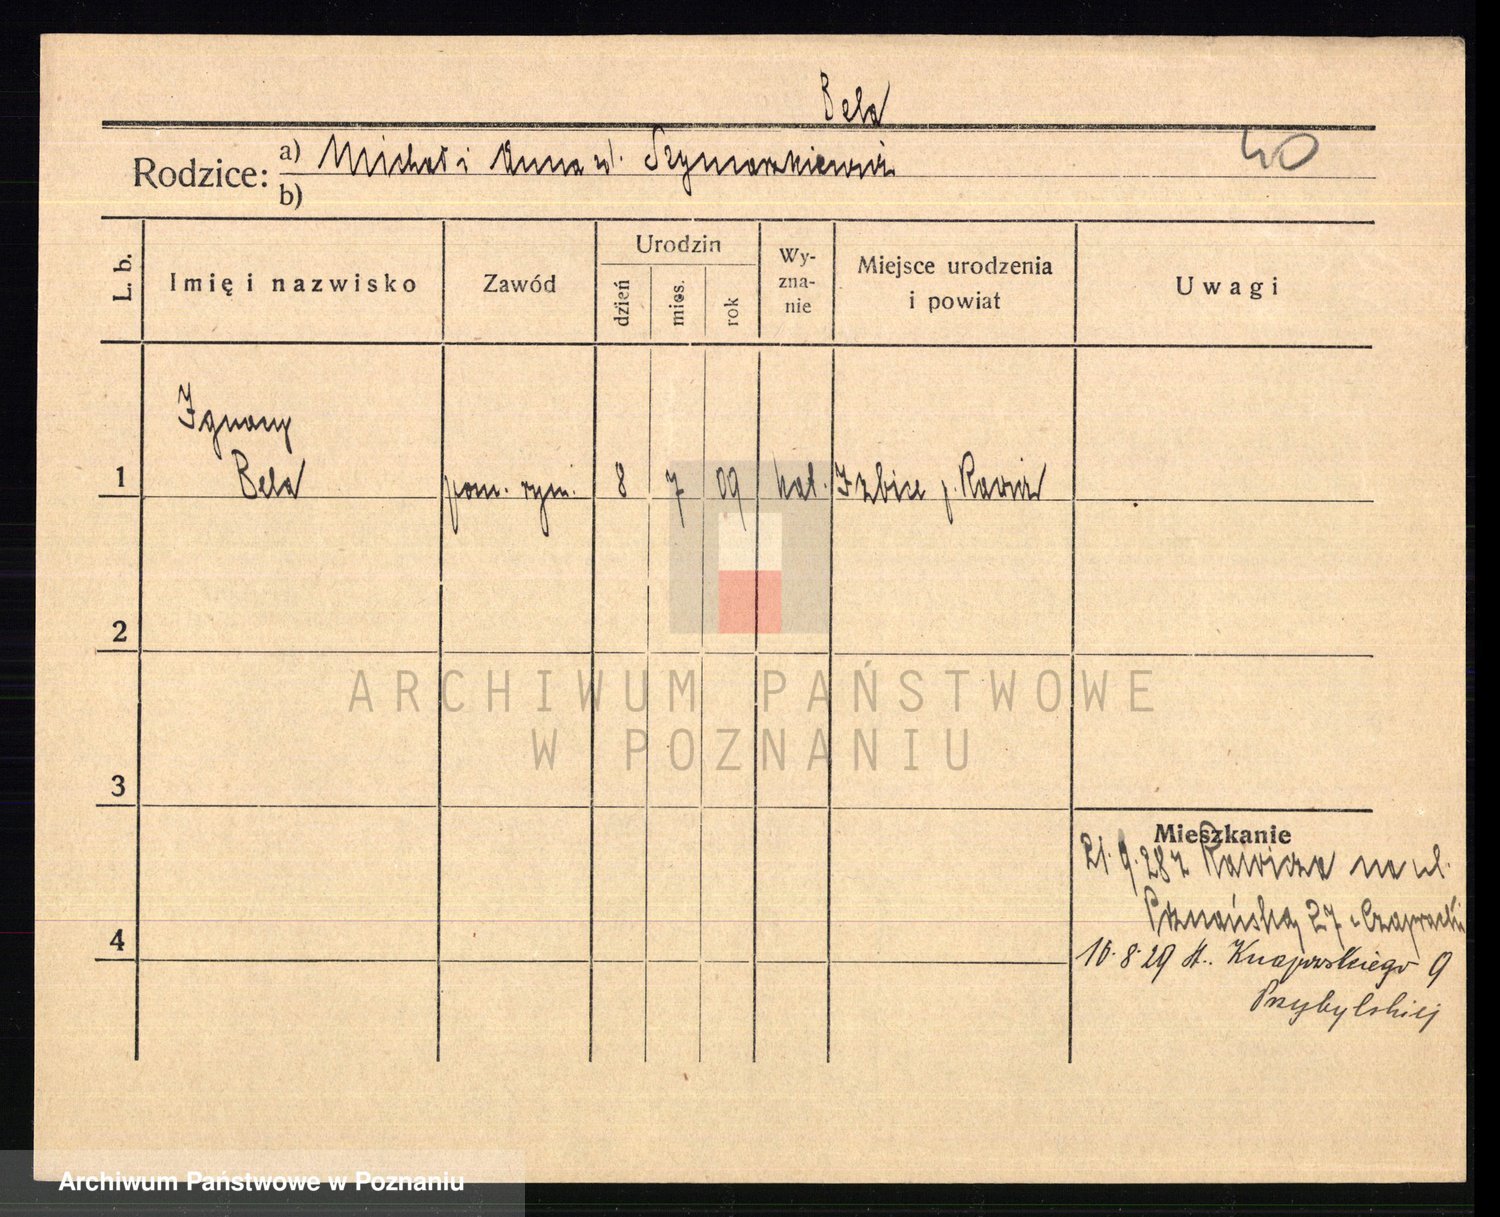 Bela
40
Rodzice: a) Michał i Anna zd. Szymarkiewicz
b)
L. b.
Imię i nazwisko
Zawód
Urodzin
dzień
mies.
rok
Wy-
zna-
nie
Miejsce urodzenia
i powiat
Uwagi
Ignacy
1 Bela pom. rym. 8 7 09 kat. Izbice p. Rawicz
2
ARCHIWUM PAŃSTWOWE
W POZNANIU
3
Mieszkanie
21.9.28 z Rawicza na ul.
Poznańska 27
4
16.8.29 Knapowskiego 9
Przybylskiej
Archiwum Państwowe w Poznaniu